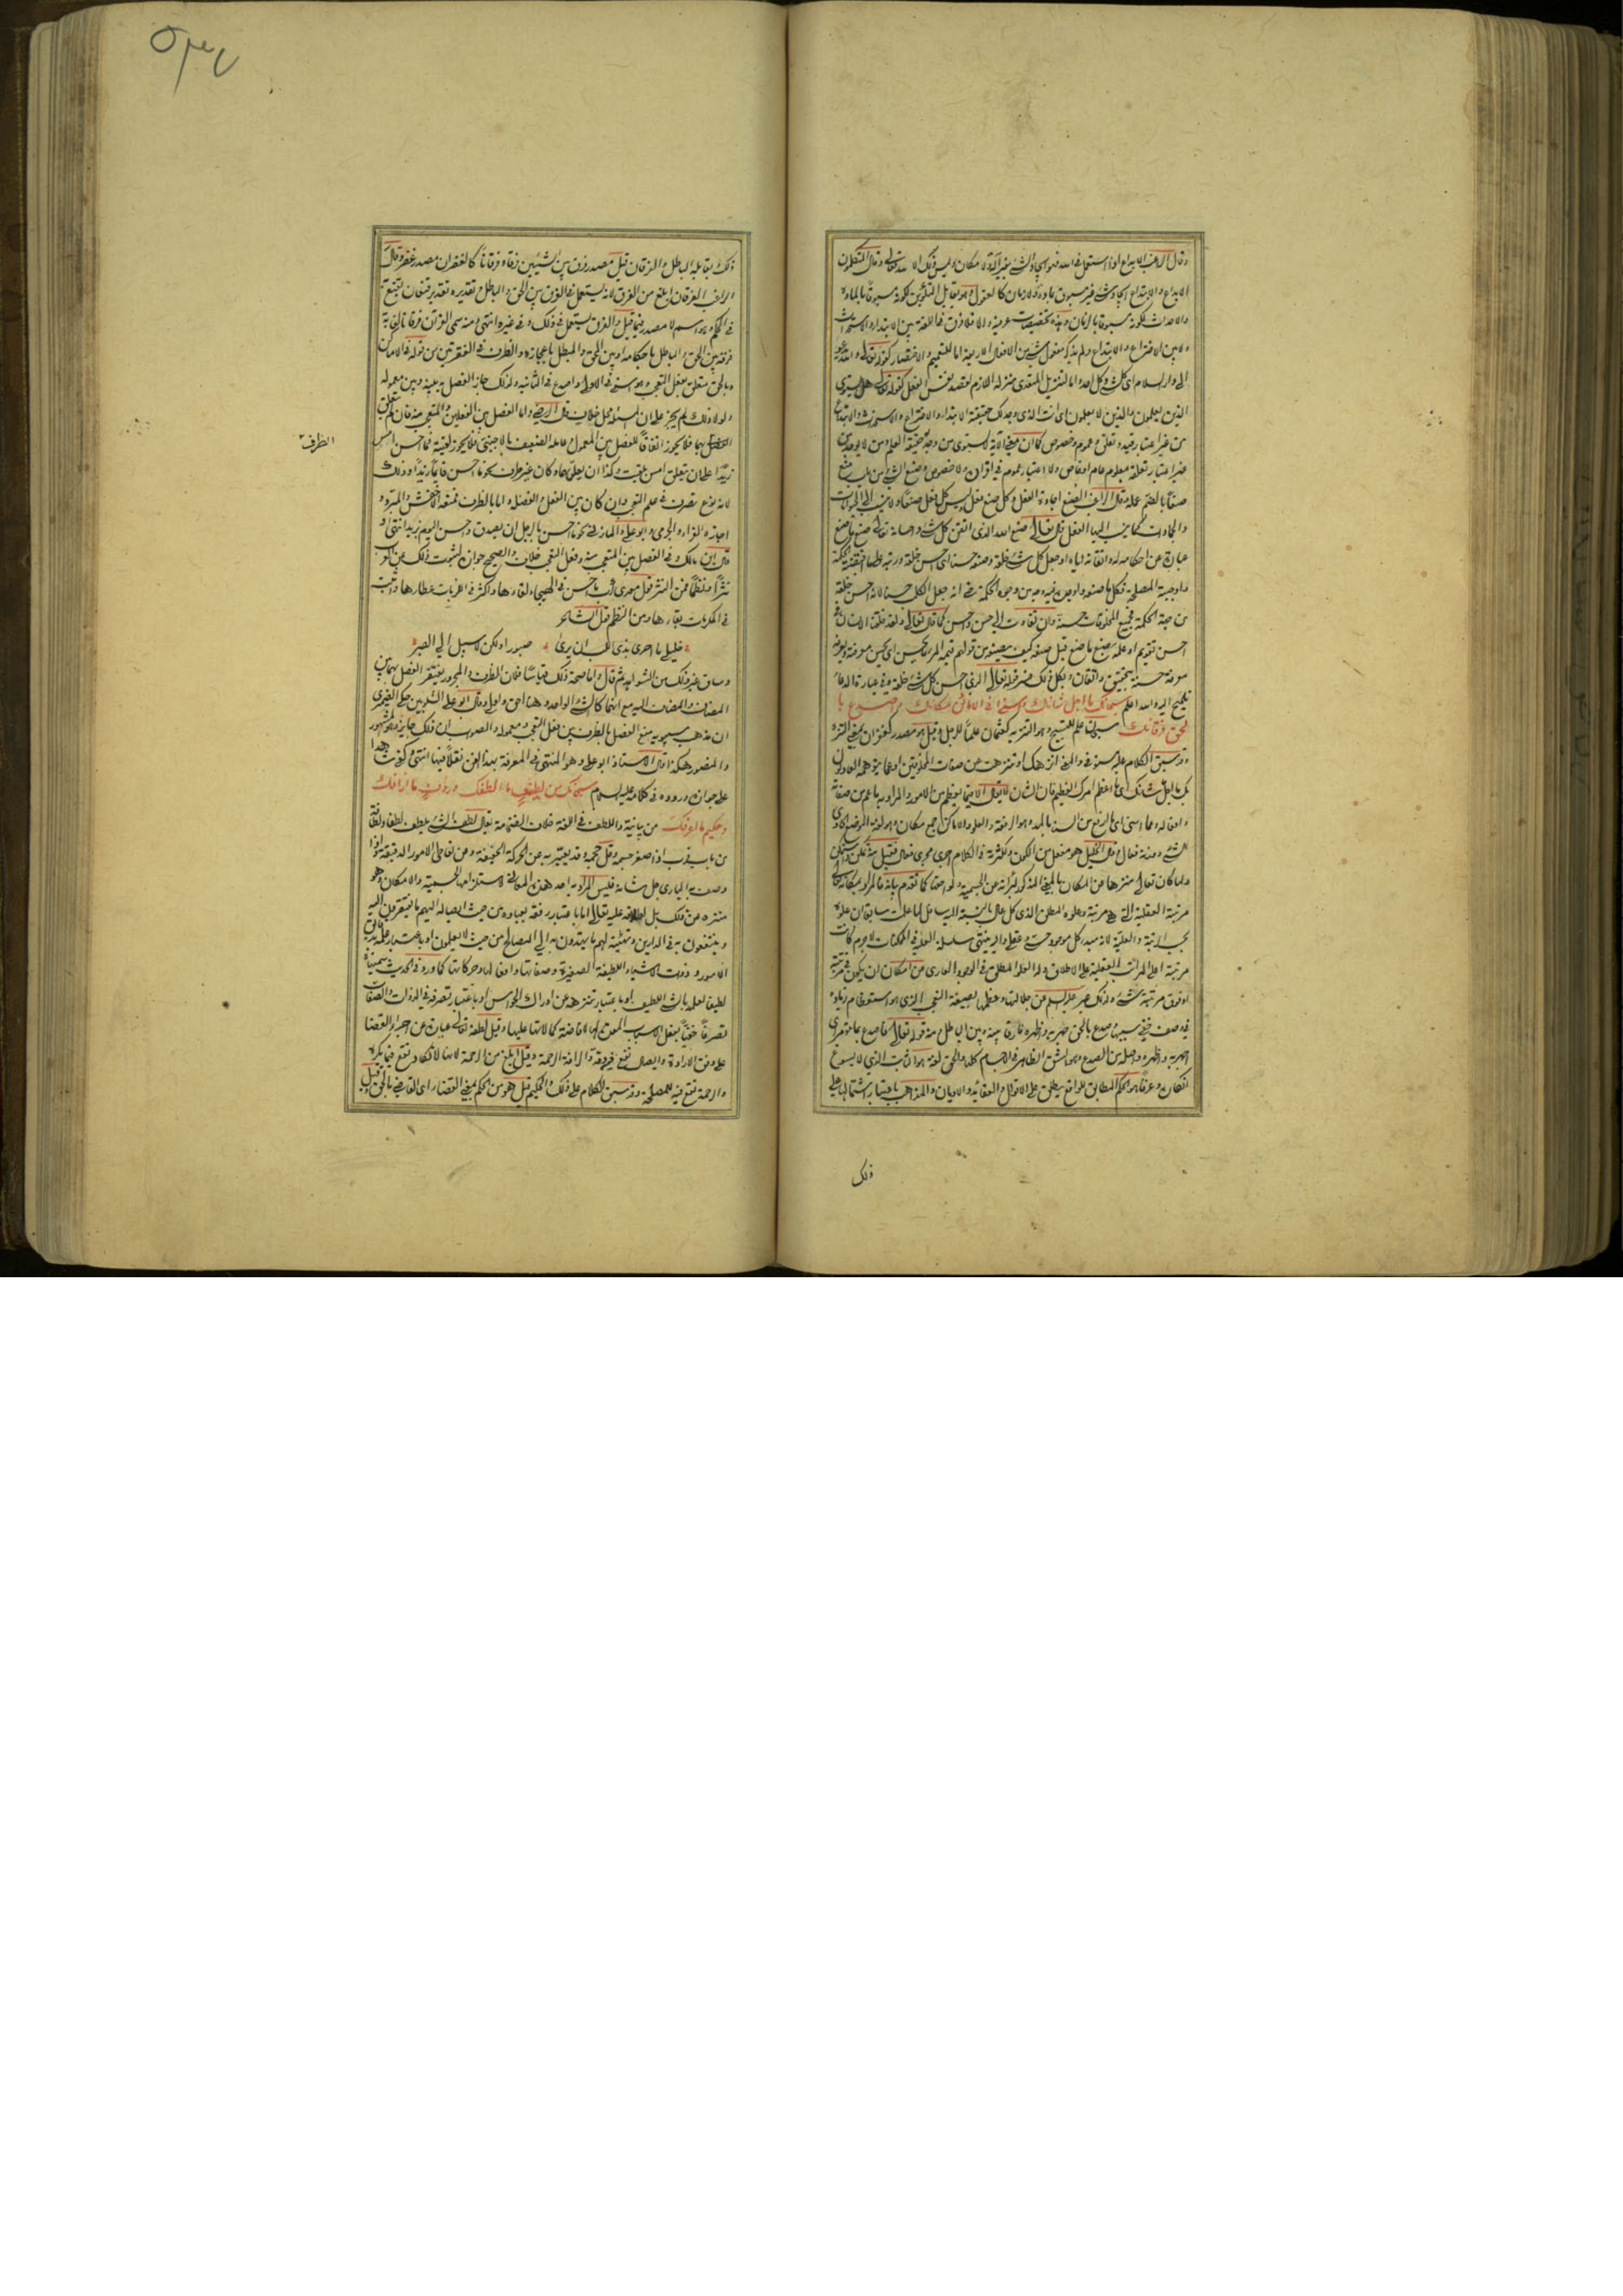 وقال الراغب الابداع اذا استعمل في الله فهو ايجاد الشيء بغير آلة ولا مكان وليس ذلك الا لله تعالى وقال المتكلمون
الابداع والابتداع ايجاد شيء غير مسبوق بمادة ولا زمان كالعقول وهو يقابل التكوين لكونه مسبوقا بالمادة
والاحداث لكونه مسبوقا بالزمان وهذه تخصيصات عرفية والا فلا فرق في اللغة بين الابتداء والاستحداث
ولا بين الاختراع والابتداع ولم يذكر مفعول شيء من الافعال الاربعة اما للتعميم والاختصار كقوله تعالى والله يدعو
الى دار السلام اي كل شيء وكل احد واما لتنزيل المتعدي منزلة اللازم لقصد نفس الفعل كقوله تعالى هل يستوي
الذين يعلمون والذين لا يعلمون اي انت الذي وجد لك حقيقة الابتداء والاختراع والاستحداث والابتداع
من غير اعتبار قيد وتعلق وعموم وخصوص كما ان معنى الآية لا يستوي من وجد له حقيقة العلم ومن لا يوجد من
غير اعتبار تعلقه بمعلوم عام او خاص ولا اعتبار عموم في افراده ولا خصوص وصنع الشيء من باب منع
صنعا بالضم عمله وقال الراغب الصنع اجادة الفعل وكل صنع فعل وليس كل فعل صنعا ولا ينسب الى الحيوانات
والجمادات كما ينسب اليها الفعل قال تعالى صنع الله الذي اتقن كل شيء واحسانه تعالى صنع ما صنع
عبارة عن احكامه له واتقانه اياه او جعل كل شيء خلقه وصنعه حسنا اي احسن خلقه ورتبه على ما اقتضته الحكمة
واوجبته المصلحة فكل ما صنعه واوجده فيه وجه من وجوه الحكمة
من جهة الحكمة فجميع المخلوقات حسنة وان تفاوتت الى حسن واحسن كما قال تعالى ولقد خلقنا الانسان في
احسن تقويم او علم صنع ما صنع قبل صنعه كيف يصنعه من قولهم قيمة المرء ما يحسن اي يحسن معرفته ويعرفه
معرفة حسنة بتحقيق واتقان وبكل ذلك فسر قوله تعالى الذي احسن كل شيء خلقه وفي عبارة الدعاء
تلميح اليه والله اعلم سبحانك ما اجل شانك واسنى في الاماكن مكانك واصدع با
لحق فرقانك سبحان علم للتسبيح وهو التنزيه كعثمان علما للرجل وقيل هو مصدر كغفران بمعنى التنزه
وقد سبق الكلام عليه مستوفى والمعنى انزهك او تنزهت عن صفات المخلوقين وعما يتوهمه العادلون
بك ما اجل شانك اي ما اعظم امرك العظيم فان الشان لا يقال الا فيما يعظم من الامور والمراد به ما يعم من صفاته
وافعاله وما اسنى اي ما ارفع من السناء بالمد وهو الرفعة والعلو والاماكن جمع مكان وهو لغة الموضع الحاوي
للشيء وعند فعال وقال الخليل هو مفعل من الكون ولكثرته في الكلام اجري مجرى فعال فقيل تمكن
ولما كان تعالى منزها عن المكان بالمعنى المذكور لبرائته عن الجسمية ولواحقها كما تقدم بيانه فالمراد بمكانه تعالى
مرتبته العقلية التي هي مرتبة وعلوه المطلق الذي كل عال بالنسبة اليه سافل
بحسب الرتبة والعلية لانه مبدء كل موجود حسي وعقلي واليه ينتهي سلسلة العلية في الممكنات لا جرم كانت
مرتبته اعلى المراتب العقلية على الاطلاق وله العلو المطلق في الوجود العاري عن امكان ان يكون في مرتبته
او فوق مرتبته شيء ولذلك عبر عليه السلام عن جلالتها وعظمها بصيغة التعجب الذي هو استعظام زيادة
في وصف خفي سببها وصدع بالحق جهر به واظهره فارقا بينه وبين الباطل ومنه قوله تعالى فاصدع بما تؤمر اي
اجهر به واظهره واصله من الصدع وهو الشق الظاهر في الاجسام كلها والحق لغة هو الثابت الذي لا يسوغ
انكاره وعرفا هو الحكم المطابق للواقع يطلق على الاقوال والعقائد والاديان والمذاهب باعتبار اشتمالها على
ذلك
ذلك ويقابله الباطل والفرقان قيل مصدر فرق بين الشيئين فرقا وفرقانا كالغفران مصدر غفر وقال
الراغب الفرقان ابلغ من الفرق لانه يستعمل في الفرق بين الحق والباطل وتقديره تقدير قنعان يقنع به
في الحكم وهو اسم لا مصدر فيما قيل والفرق يستعمل في ذلك وفي غيره انتهى ومنه سمي القرآن فرقانا لانه
فرق بين الحق والباطل باحكامه او بين المحق والمبطل باعجازه والظرف في الفقرتين من قوله في الاماكن
وبالحق متعلق بفعل التعجب وهو اسنى في الاولى واصدع في الثانية ولذلك جاز الفصل به بينه وبين معموله
ولولا ذلك لم يجز على ان المسئلة محل خلاف قال الرضي واما الفصل بين الفعلين والمتعجب منه فان لم يتعلق
الظرف
بهما فلا يجوز اتفاقا للفصل بين المعمول وعامله الضعيف بالاجنبي فلا يجوز لقيته فما احسن امس
زيدا على ان يتعلق امس بلقيت وكذا ان تعلق بهما وكان غير ظرف نحو ما احسن قائما زيدا وذلك
لانه نوع تصرف في علم التعجب وان كان بين الفعل والفضلة واما بالظرف فمنعه الاخفش والمبرد و
اجازه الفراء والجرمي وابو علي والمازني نحو ما احسن بالرجل ان يصدق واحسن اليوم بزيد انتهى و
قال ابن مالك في الفصل بين المتعجب منه وفعل التعجب خلاف والصحيح جوازه لثبوت ذلك عن العرب
نثرا ونظما فمن النثر قول عمرو بن معديكرب ما احسن في الهيجاء لقاءها واكثر في اللزبات عطاءها واثبت
في المكرمات بقاءها ومن النظم قول الشاعر
خليلي ما احرى بذي اللب ان يرى صبورا ولكن لا سبيل الى الصبر
وساق غير ذلك من الشواهد ثم قال واما صحة ذلك قياسا فلان الظرف والمجرور يغتفر الفصل بهما بين
المضاف والمضاف اليه مع انهما كالشيء الواحد وهنا احق واولى وقال ابو علي الشلوبين حكى الصيمري
ان مذهب سيبويه منع الفصل بالظرف بين فعل التعجب ومعموله والصواب ان ذلك جائز وهو المشهور
والمنصور هكذا قال الاستاذ ابو علي وهو المنتهى في المعرفة بهذا الفن نقلا وفهما انتهى
على جوازه وروده في كلامه عليه السلام سبحانك من لطيف ما الطفك ورؤف ما ارأفك
وحكيم ما اعرفك من بيانية واللطف في اللغة خلاف الضخامة يقال لطف الشيء يلطف لطفا ولطافة
من باب قرب اذا صغر جسمه وقل حجمه وقد يعبر به عن الحركة الخفيفة وعن تعاطي الامور الدقيقة واذا
وصف به الباري جل شانه فليس المراد به احد هذه المعاني لاستلزامها الجسمية والامكان وهو
منزه عن ذلك بل اطلاقه عليه تعالى اما باعتبار رفقه بعباده من حيث ايصاله اليهم ما يفتقرون اليه
وينتفعون به في الدارين وتهيئته لهم ما يهتدون به الى المصالح من حيث لا يعلمون او باعتبار علمه بدقائق
الامور وذوات الاشياء اللطيفة الصغيرة وصفاتها وافعالها وحركاتها كما ورد في الحديث سميناه
لطيفا لعلمه بالشيء اللطيف او باعتبار تنزهه عن ادراك الحواس او باعتبار تصرفه في الذوات والصفات
تصرفا خفيا بفعل الاسباب المعدة لها لافاضة كمالاتها عليها وقيل لطفه تعالى عبارة عن اجراء القضا
على وفق الارادة وايصال نفع فيه دقة والرافة الرحمة وقيل ابلغ من الرحمة لانها لا تكاد تقع فيما يكره
والرحمة تقع فيه للمصلحة وقد سبق الكلام على ذلك والحكيم قيل هو من الحكم بمعنى القضاء اي القاضي بالحق وقيل